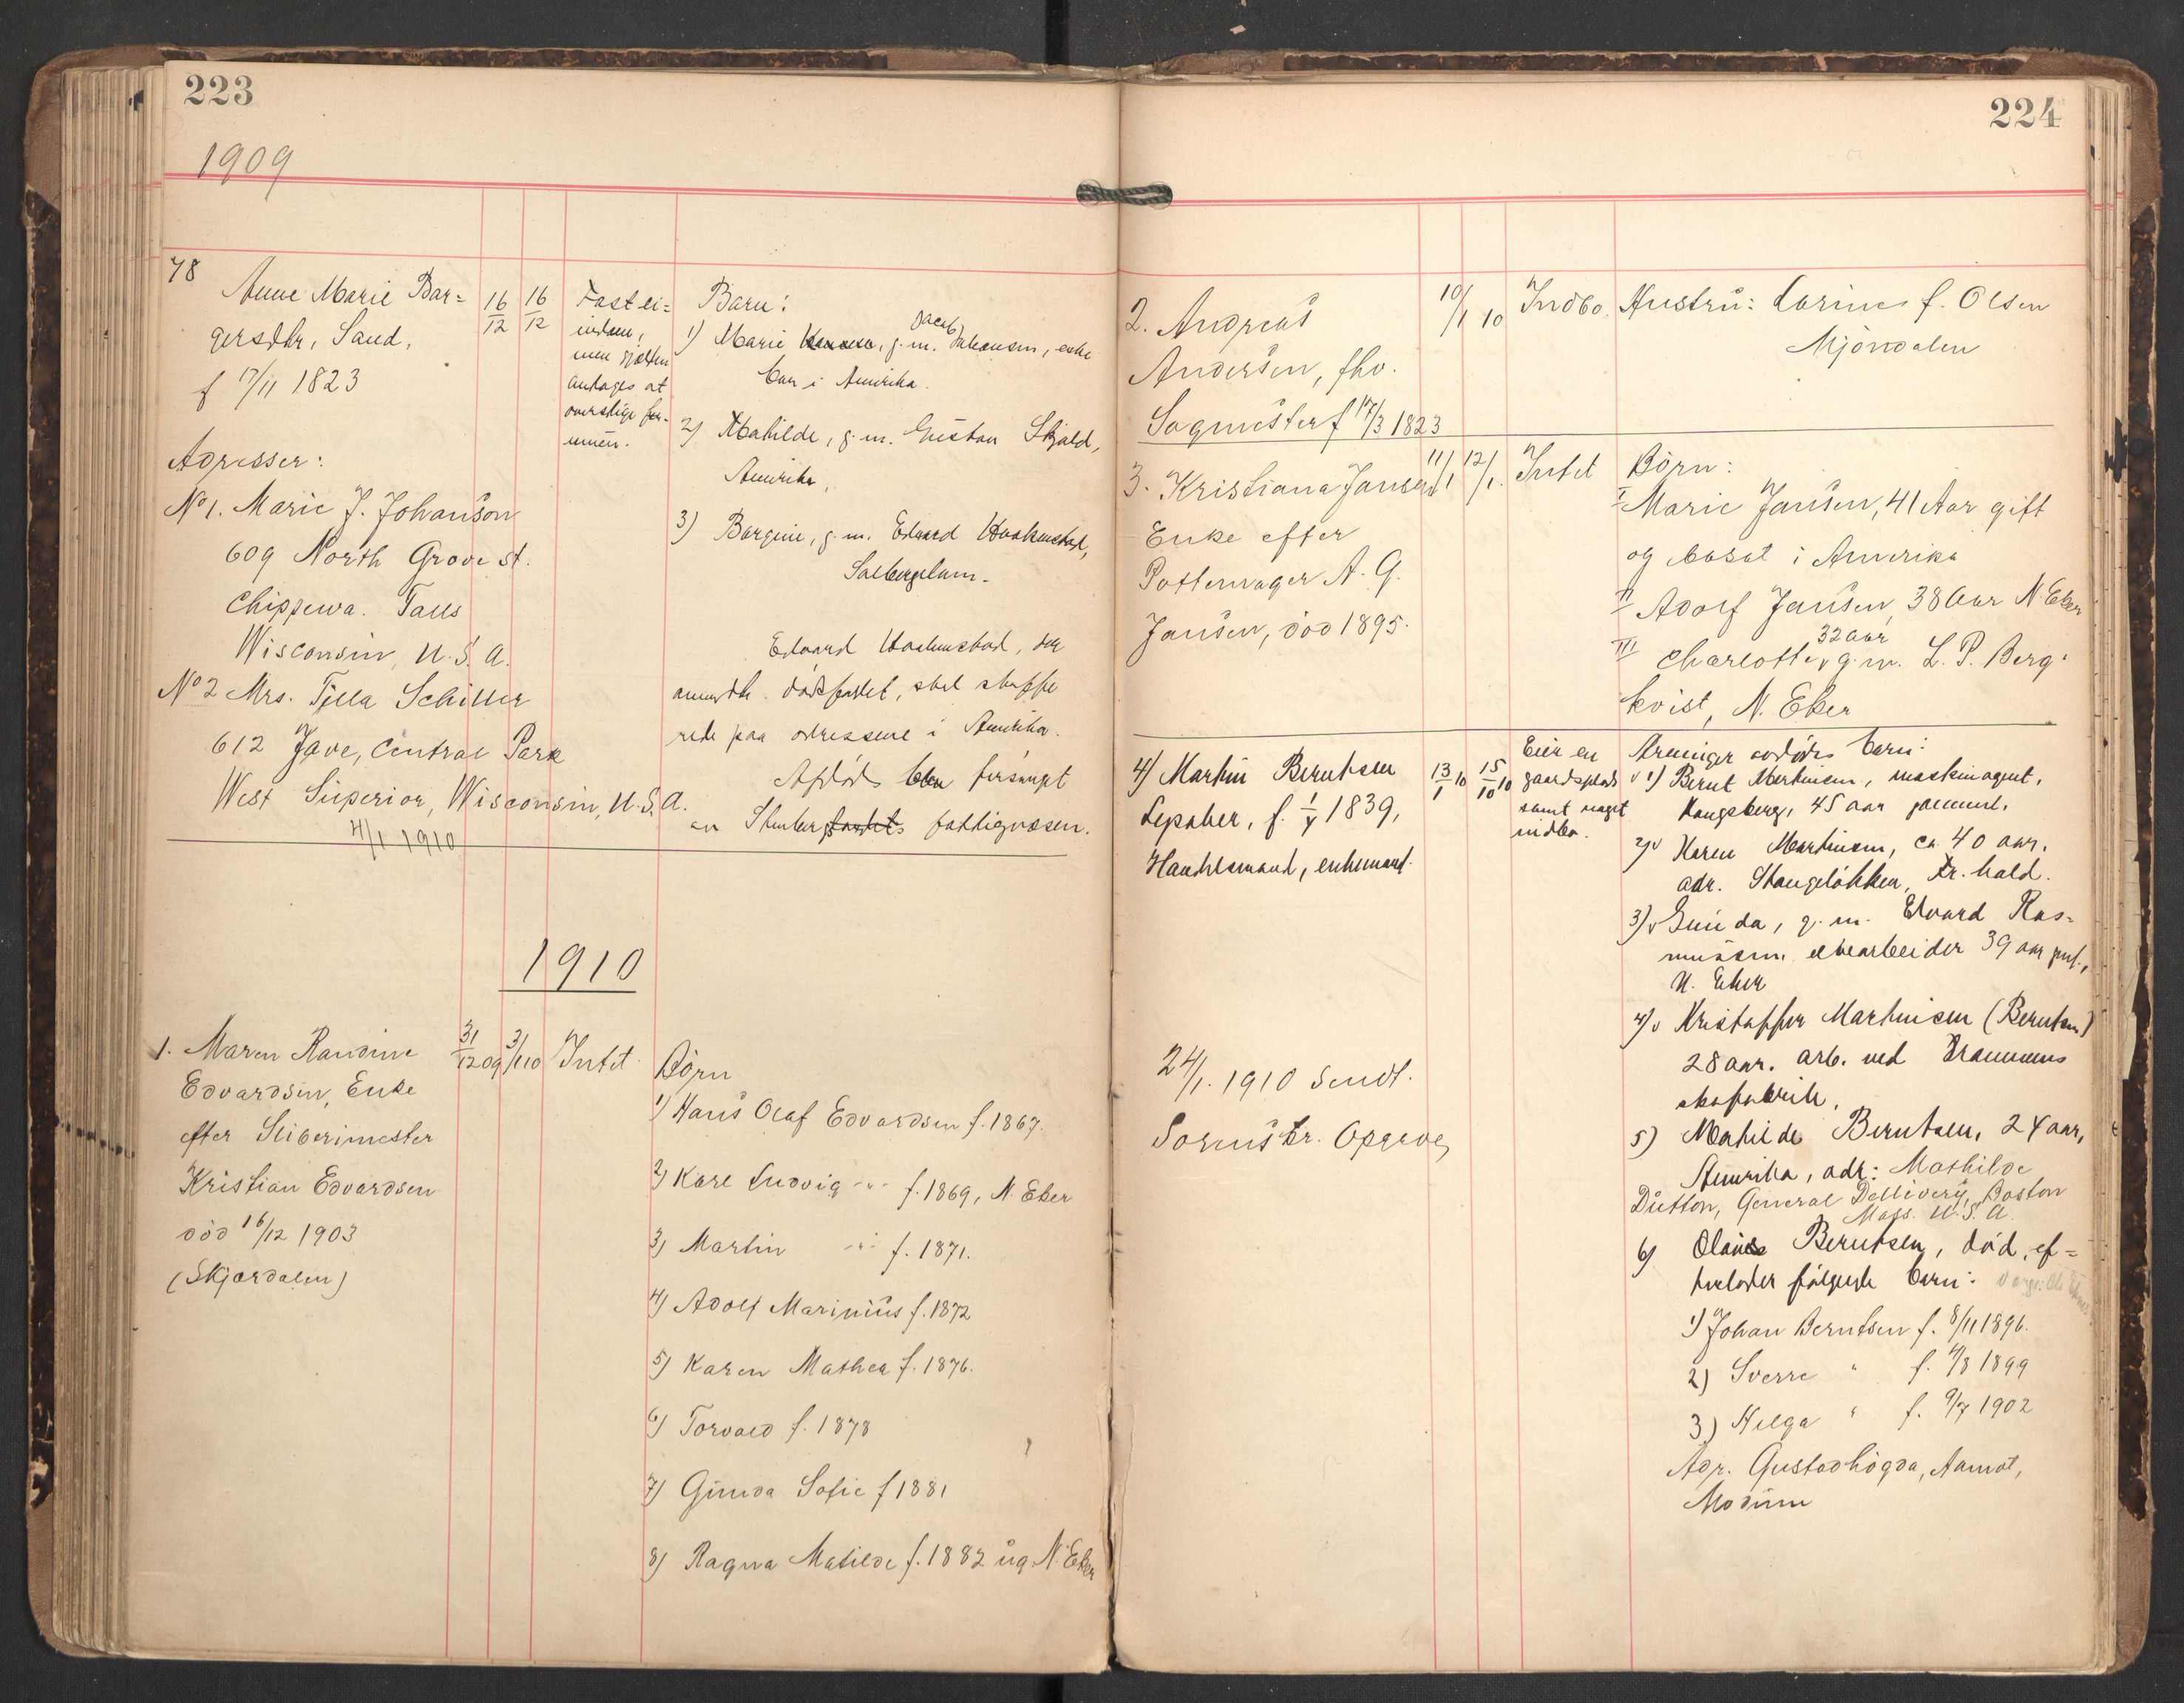 223
1909
78
Anne Marie Bar=
gersdtr, Sand,
f 17/11 1823
16/12
16/12
Fastei=
endom,
men gjælden
antages at
overstige for-
muen.
Barn:
1) Marie, g. m. Jacob Johansen, eske
bar i Amerika.
2) Mathilde, g. m. Gustav Skjold,
Amerika,
3) Bargine, g. m. Edvard Haakenstad,
Solbergelven.
Edvard Haakenstad, der
anmeldte dødsfaldet, skal skaffe
rede paa adressene i Amerika.
Afdøde blev forsørget
av fattigvæsen.
Adresser:
No 1. Marie J. Johanson
609 North Grove st.
Chippewa. Falls
Wisconsin, U.S.A.
No 2 Mrs. Tilla Schiller
612 Jave, Central Park
West Superior, Wisconsin, U.S.A.
4/1 1910
1910
1. Maren Randine
Edvardsen, Enke
efter Sliberimester
Kristian Edvardsen
død 16/12 1903
(Skjærdalen)
31/12 09
3/1 10
Intet
Børn
1) Hans Olaf Edvardsen f. 1867.
2) Karl Ludvig -"- f. 1869, N. Eker
3) Martin -"- f. 1871.
4) Adolf Marinius f. 1872
5) Karen Mathea f. 1876.
6) Torvald f. 1878
7) Gunda Sofie f 1881
8) Ragna Matilde f. 1882 ug. N. Eker
224
2. Andreas
Andersen, fhv.
Sagmester f 17/3 1823
10/1 10
Indbo
Hustru: Karine f. Olsen
Mjøndalen
3. Kristiana Jansen
Enke efter
Pottemager A. G.
Jansen, død 1895.
11/1
12/1.
Intet
Børn:
I Marie Jansen, 41 Aar gift
og bosat i Amerika
II Adolf Jansen, 38 Aar N. Eker
III Charlotte, 32 aar, g. m. L. P. Berg-
kvist, N. Eker
4) Martin Berntsen
Lepaker, f. 1/4 1839,
Handelsmand, enkemand.
13/1 10
15/10 10
Eier en
gaardsplads
samt noget
indbo.
Arvinger avdødes børn:
v 1) Bernt Martinsen, maskinagent,
Kongsberg, 45 aar gammel.
2) v Karen Martinsen, ca 40 aar,
adr. Stangeløkken, Dr. hald.
3) v Gunda, g. m. Edvard Ras=
mussen, elvearbeider 39 aar gml.,
N. Eker
4) v Kristoffer Martinsen (Berntsen)
28 aar. arb. ved Drammens
skofabrik.
5) Mathilde Berntsen, 24 aar,
Amerika, adr: Mathilde
Dutton, General Dellivery, Boston
Mass. U.S.A.
6) Olaus Berntsen, død, ef=
terlader følgende børn:
1) Johan Berntsen f. 8/11 1896.
2) Sverre " f. 4/8 1899
3) Helga " f. 9/7 1902
Adr. Gustadhøgda, Aamot,
Modum
24/1. 1910 Sendt.
Sorenskr. Opgave